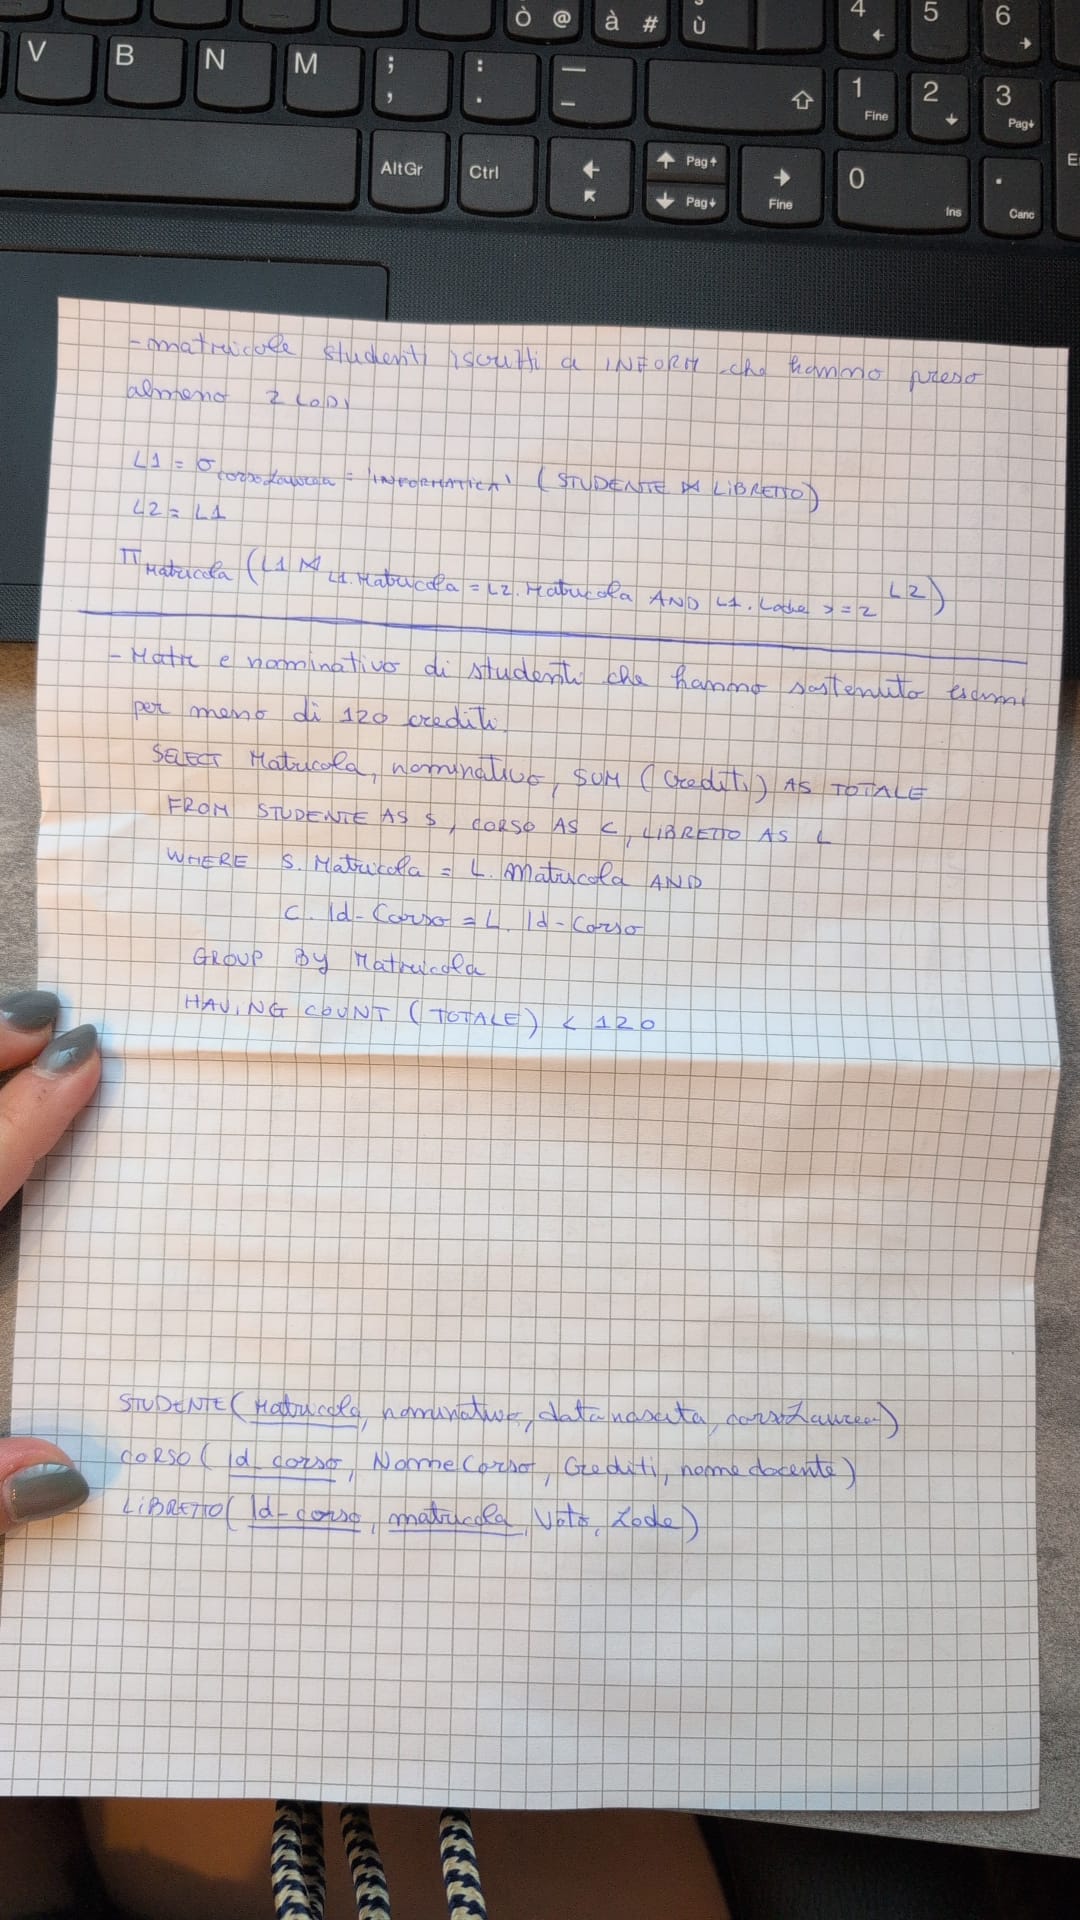 ò @ à # ù 4 5 6
V B N M ; , : . — _ 1 Fine 2 3 Pag
AltGr Ctrl Pag Pag Fine 0 Ins . Canc
- matricole studenti iscritti a INFORM che hanno preso
almeno 2 LODI
L1 = σ corsoLaurea = 'INFORMATICA' (STUDENTE ⋈ LIBRETTO)
L2 = L1
π Matricola (L1 ⋈ L1.Matricola = L2.Matricola AND L1.Lode >= 2 L2)
- Matr e nominativo di studenti che hanno sostenuto esami
per meno di 120 crediti.
SELECT Matricola, nominativo, SUM (Crediti) AS TOTALE
FROM STUDENTE AS S, CORSO AS C, LIBRETTO AS L
WHERE S. Matricola = L. Matricola AND
C. Id-Corso = L. Id-Corso
GROUP By Matricola
HAVING COUNT (TOTALE) < 120
STUDENTE (Matricola, nominativo, datanascita, corsoLaurea)
CORSO (Id_corso, NomeCorso, Crediti, nomedocente)
LIBRETTO (Id-corso, matricola, Voto, Lode)